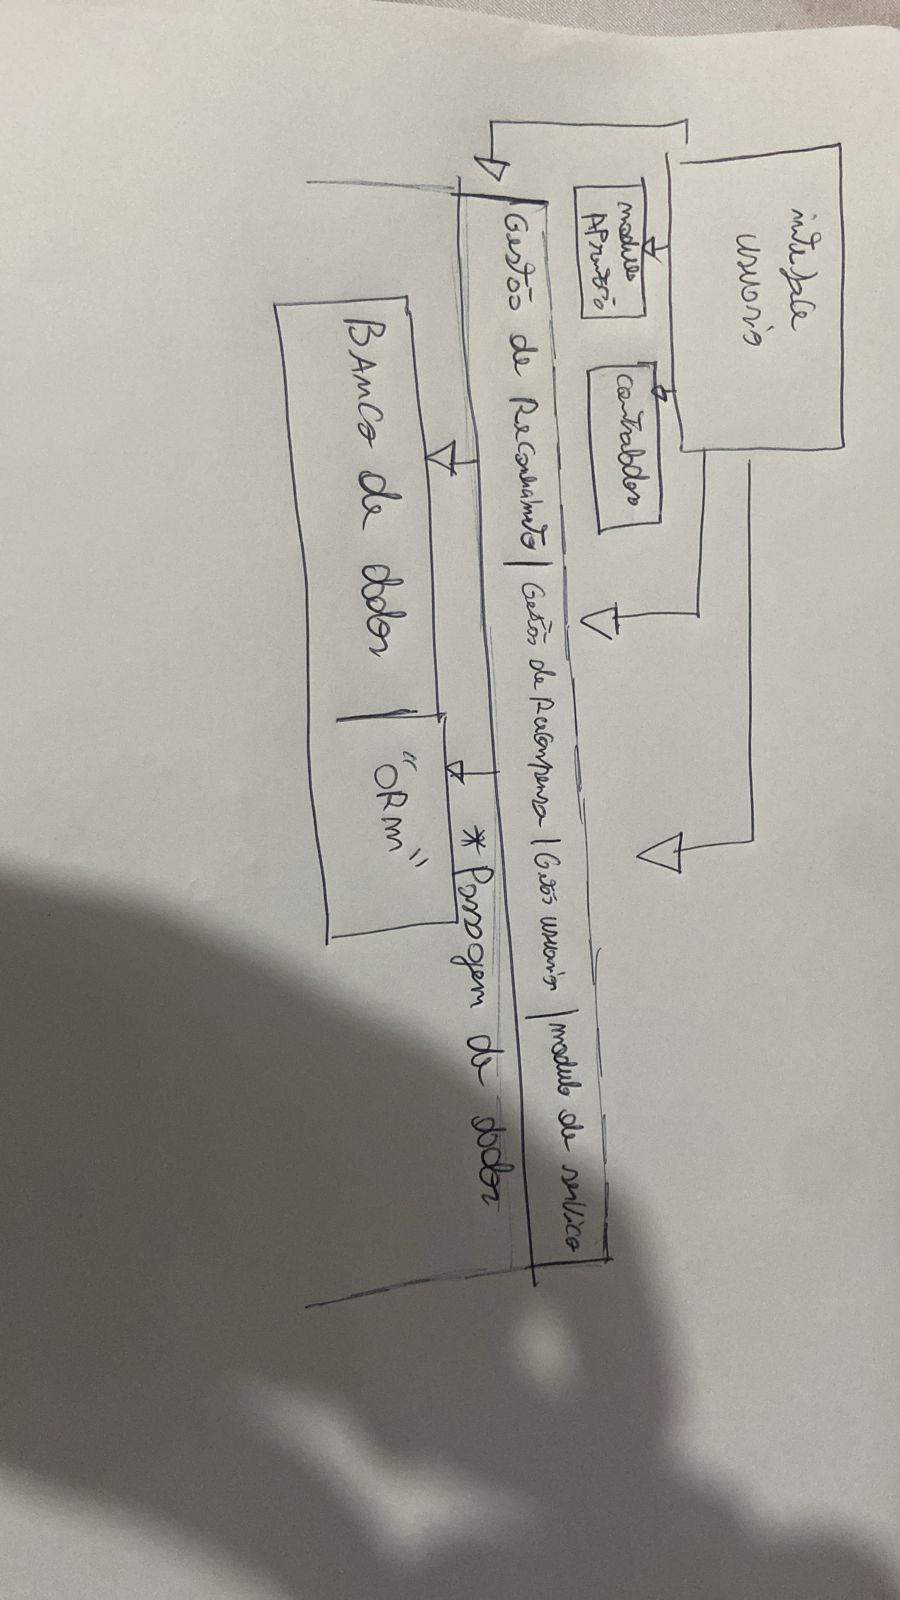 interface
usuario
modulo
contrabdor
Gestão de Reconhimeto | Gestão de Recompensa | Gestão usuario | modulo de serviço
* Passagem de dados
Banco de dados | "ORM"